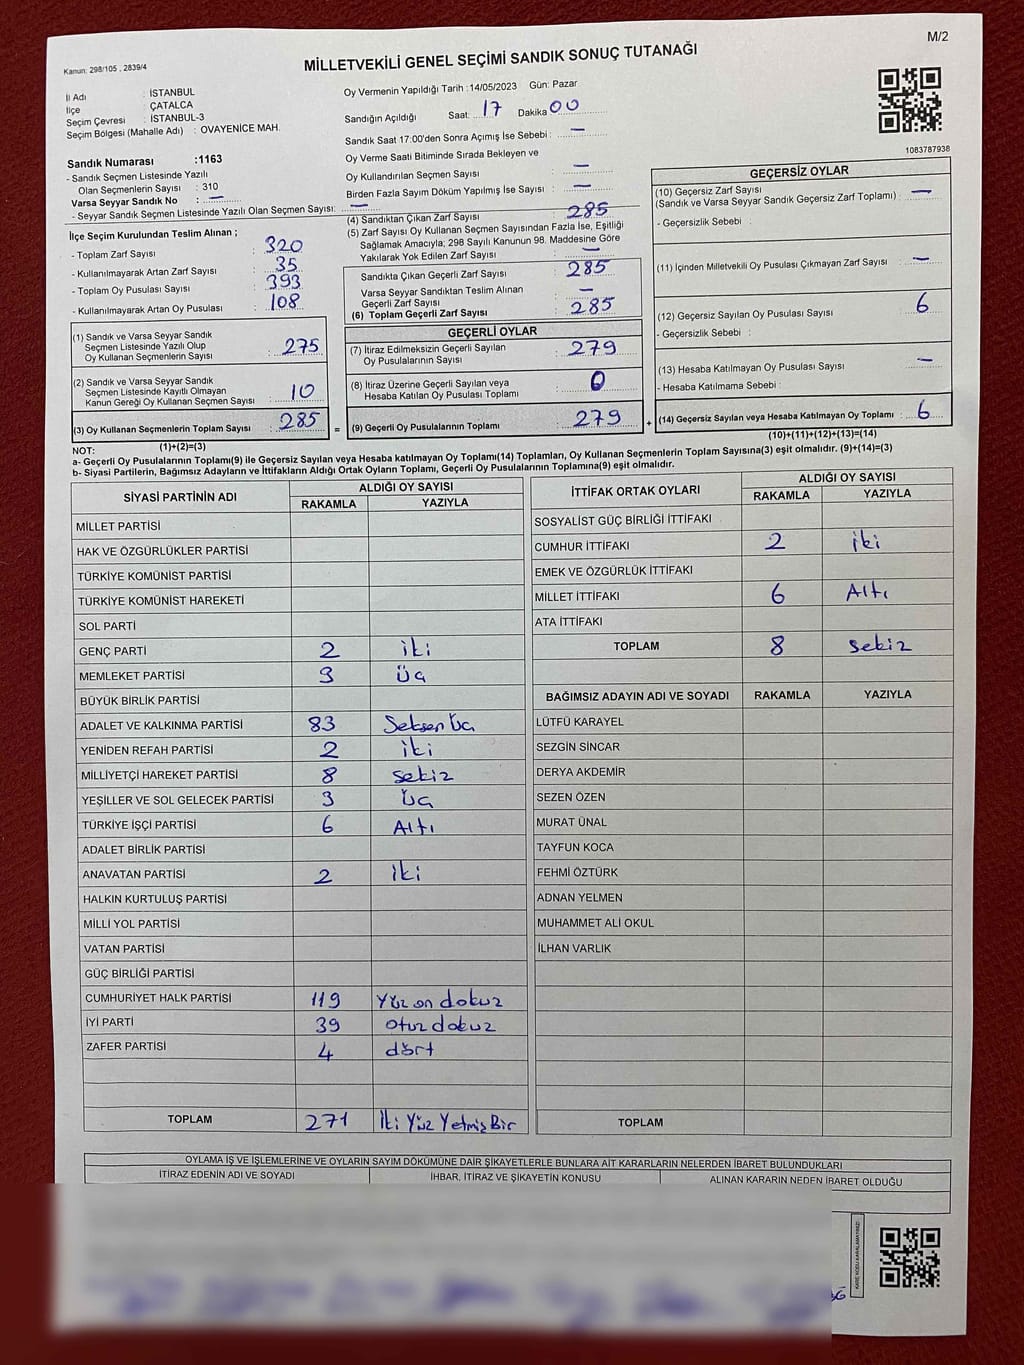 M/2
Kanun: 298/105 , 2839/4
MİLLETVEKİLİ GENEL SEÇİMİ SANDIK SONUÇ TUTANAĞI
İl Adı : İSTANBUL
İlçe : ÇATALCA
Seçim Çevresi : İSTANBUL-3
Seçim Bölgesi (Mahalle Adı) : OVAYENİCE MAH.
Sandık Numarası :1163
- Sandık Seçmen Listesinde Yazılı
Olan Seçmenlerin Sayısı : 310
Varsa Seyyar Sandık No : —
- Seyyar Sandık Seçmen Listesinde Yazılı Olan Seçmen Sayısı: —
Oy Vermenin Yapıldığı Tarih :14/05/2023 Gün: Pazar
Sandığın Açıldığı Saat: 17 Dakika 00
Sandık Saat 17:00'den Sonra Açımış İse Sebebi : —
Oy Verme Saati Bitiminde Sırada Bekleyen ve
Oy Kullandırılan Seçmen Sayısı : —
Birden Fazla Sayım Döküm Yapılmış İse Sayısı : —
1083787938
İlçe Seçim Kurulundan Teslim Alınan ;
- Toplam Zarf Sayısı : 320
- Kullanılmayarak Artan Zarf Sayısı : 35
- Toplam Oy Pusulası Sayısı : 393
- Kullanılmayarak Artan Oy Pusulası : 108
(1) Sandık ve Varsa Seyyar Sandık
Seçmen Listesinde Yazılı Olup
Oy Kullanan Seçmenlerin Sayısı : 275
(2) Sandık ve Varsa Seyyar Sandık
Seçmen Listesinde Kayıtlı Olmayan
Kanun Gereği Oy Kullanan Seçmen Sayısı : 10
(3) Oy Kullanan Seçmenlerin Toplam Sayısı : 285 =
(1)+(2)=(3)
(4) Sandıktan Çıkan Zarf Sayısı : 285
(5) Zarf Sayısı Oy Kullanan Seçmen Sayısından Fazla İse, Eşitliği
Sağlamak Amacıyla; 298 Sayılı Kanunun 98. Maddesine Göre
Yakılarak Yok Edilen Zarf Sayısı : —
Sandıkta Çıkan Geçerli Zarf Sayısı : 285
Varsa Seyyar Sandıktan Teslim Alınan
Geçerli Zarf Sayısı : —
(6) Toplam Geçerli Zarf Sayısı : 285
GEÇERLİ OYLAR
(7) İtiraz Edilmeksizin Geçerli Sayılan
Oy Pusulalarının Sayısı : 279
(8) İtiraz Üzerine Geçerli Sayılan veya
Hesaba Katılan Oy Pusulası Toplamı : 0
(9) Geçerli Oy Pusulalarının Toplamı : 279 +
GEÇERSİZ OYLAR
(10) Geçersiz Zarf Sayısı
(Sandık ve Varsa Seyyar Sandık Geçersiz Zarf Toplamı) : —
- Geçersizlik Sebebi :
(11) İçinden Milletvekili Oy Pusulası Çıkmayan Zarf Sayısı : —
(12) Geçersiz Sayılan Oy Pusulası Sayısı : 6
- Geçersizlik Sebebi :
(13) Hesaba Katılmayan Oy Pusulası Sayısı : —
- Hesaba Katılmama Sebebi :
(14) Geçersiz Sayılan veya Hesaba Katılmayan Oy Toplamı : 6
(10)+(11)+(12)+(13)=(14)
NOT:
a- Geçerli Oy Pusulalarının Toplamı(9) ile Geçersiz Sayılan veya Hesaba katılmayan Oy Toplamı(14) Toplamları, Oy Kullanan Seçmenlerin Toplam Sayısına(3) eşit olmalıdır. (9)+(14)=(3)
b- Siyasi Partilerin, Bağımsız Adayların ve İttifakların Aldığı Ortak Oyların Toplamı, Geçerli Oy Pusulalarının Toplamına(9) eşit olmalıdır.
SİYASİ PARTİNİN ADI ALDIĞI OY SAYISI
RAKAMLA YAZIYLA
MİLLET PARTİSİ
HAK VE ÖZGÜRLÜKLER PARTİSİ
TÜRKİYE KOMÜNİST PARTİSİ
TÜRKİYE KOMÜNİST HAREKETİ
SOL PARTİ
GENÇ PARTİ 2 iki
MEMLEKET PARTİSİ 3 üç
BÜYÜK BİRLİK PARTİSİ
ADALET VE KALKINMA PARTİSİ 83 Seksen üç
YENİDEN REFAH PARTİSİ 2 iki
MİLLİYETÇİ HAREKET PARTİSİ 8 sekiz
YEŞİLLER VE SOL GELECEK PARTİSİ 3 üç
TÜRKİYE İŞÇİ PARTİSİ 6 Altı
ADALET BİRLİK PARTİSİ
ANAVATAN PARTİSİ 2 iki
HALKIN KURTULUŞ PARTİSİ
MİLLİ YOL PARTİSİ
VATAN PARTİSİ
GÜÇ BİRLİĞİ PARTİSİ
CUMHURİYET HALK PARTİSİ 119 Yüz on dokuz
İYİ PARTİ 39 otuz dokuz
ZAFER PARTİSİ 4 dört
TOPLAM 271 İki Yüz Yetmiş Bir
İTTİFAK ORTAK OYLARI ALDIĞI OY SAYISI
RAKAMLA YAZIYLA
SOSYALİST GÜÇ BİRLİĞİ İTTİFAKI
CUMHUR İTTİFAKI 2 iki
EMEK VE ÖZGÜRLÜK İTTİFAKI
MİLLET İTTİFAKI 6 Altı
ATA İTTİFAKI
TOPLAM 8 sekiz
BAĞIMSIZ ADAYIN ADI VE SOYADI RAKAMLA YAZIYLA
LÜTFÜ KARAYEL
SEZGİN SİNCAR
DERYA AKDEMİR
SEZEN ÖZEN
MURAT ÜNAL
TAYFUN KOCA
FEHMİ ÖZTÜRK
ADNAN YELMEN
MUHAMMET ALİ OKUL
İLHAN VARLIK
TOPLAM
OYLAMA İŞ VE İŞLEMLERİNE VE OYLARIN SAYIM DÖKÜMÜNE DAİR ŞİKAYETLERLE BUNLARA AİT KARARLARIN NELERDEN İBARET BULUNDUKLARI
İTİRAZ EDENİN ADI VE SOYADI İHBAR, İTİRAZ VE ŞİKAYETİN KONUSU ALINAN KARARIN NEDEN İBARET OLDUĞU